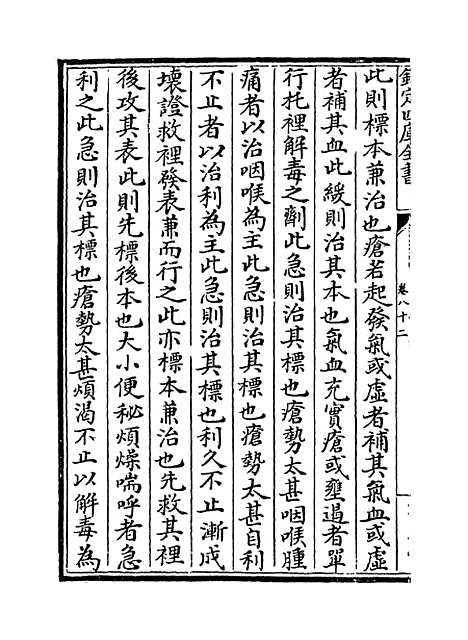 欽定四庫全書
卷八十二
此則標本兼治也瘡若起發氣或虛者補其氣血或虛
者補其血此緩則治其本也氣血充實瘡或壅遏者單
行托裡解毒之劑此急則治其標也瘡勢太甚咽喉腫
痛者以治咽喉為主此急則治其標也瘡勢太甚自利
不止者以治利為主此急則治其標也利久不止漸成
壞證救裡發表兼而行之此亦標本兼治也先救其裡
後攻其表此則先標後本也大小便秘煩燥喘呼者急
利之此急則治其標也瘡勢太甚煩渴不止以解毒為